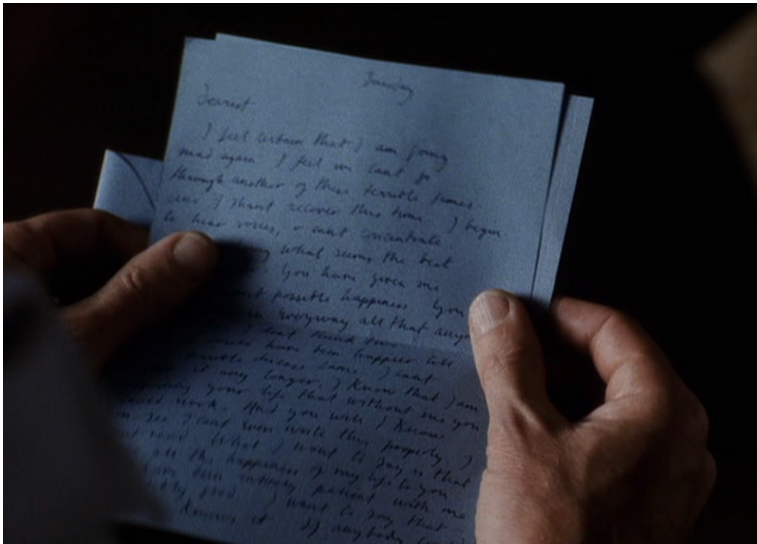 Tuesday
Dearest
I feel certain that I am going
mad again I feel we cant go
through another of these terrible times
and I shant recover this time I begin
to hear voices, & cant concentrate
doing what seems the best
You have given me
possible happiness You
in everyway all that anyone
I dont think two
could have been happier till
terrible disease came. I cant
it any longer, I know that I am
your life that without me you
could work. And you will I know
see I cant even write this properly, I
cant read. What I want to say is that
all the happiness of my life to you
have been entirely patient with me
good. I want to say that
knows it. If anybody could